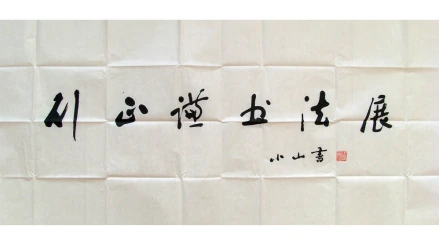 刘正谦书法展
小山書